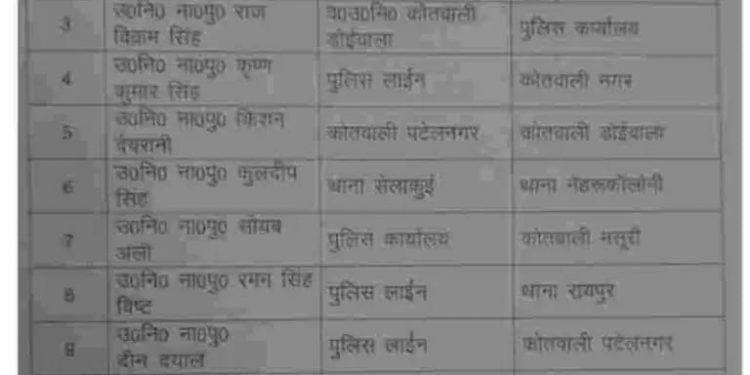 3
उ0नि0 ना0पु0 राज
विक्रम सिंह
व0उ0नि0 कोतवाली
डोईवाला
पुलिस कार्यालय
4
उ0नि0 ना0पु0 कृष्ण
कुमार सिंह
पुलिस लाईन
कोतवाली नगर
5
उ0नि0 ना0पु0 किशन
देवरानी
कोतवाली पटेलनगर
कोतवाली डोईवाला
6
उ0नि0 ना0पु0 कुलदीप
सिंह
थाना सेलाकुई
थाना नेहरूकॉलोनी
7
उ0नि0 ना0पु0 सोयब
अली
पुलिस कार्यालय
कोतवाली मसूरी
8
उ0नि0 ना0पु0 रमन सिंह
विष्ट
पुलिस लाईन
थाना रायपुर
9
उ0नि0 ना0पु0
दीन दयाल
पुलिस लाईन
कोतवाली पटेलनगर